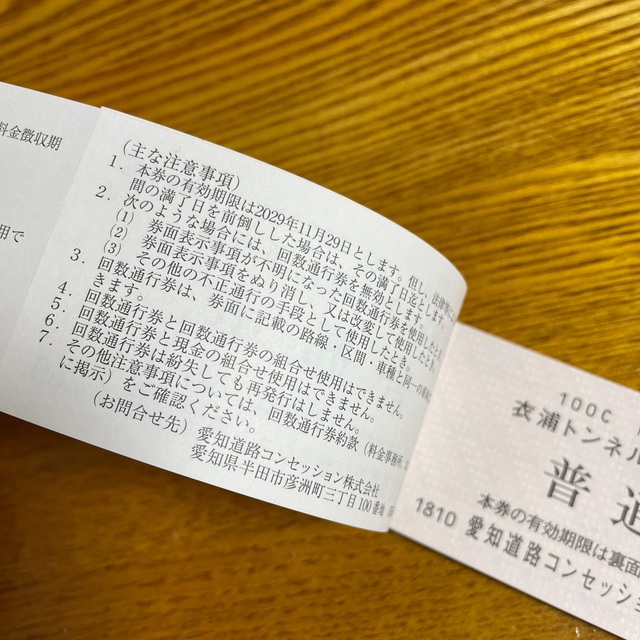 料金徴収期
用で
(主な注意事項)
1. 本券の有効期限は2029年11月29日とします。但し、法律
間の満了日を前倒しした場合は、その満了日迄とします。
2. 次のような場合には、回数通行券を無効とします。
(1) 券面表示事項が不明になった回数通行券を使用したとき。
(2) 券面表示事項をぬり消し、又は改変して使用したとき。
(3) その他の不正通行の手段として使用したとき。
3. 回数通行券は、券面に記載の路線・区間・車種と同一の
きます。
4. 回数通行券と回数通行券の組合せ使用はできません。
5. 回数通行券と現金の組合せ使用はできません。
6. 回数通行券は紛失しても再発行はしません。
7. その他注意事項については、回数通行券約款(料金事務所
に掲示)をご確認ください。
(お問合せ先) 愛知道路コンセッション株式会社
愛知県半田市彦洲町三丁目100番地
100C
衣浦トンネル
普通
本券の有効期限は裏面
1810 愛知道路コンセッショ